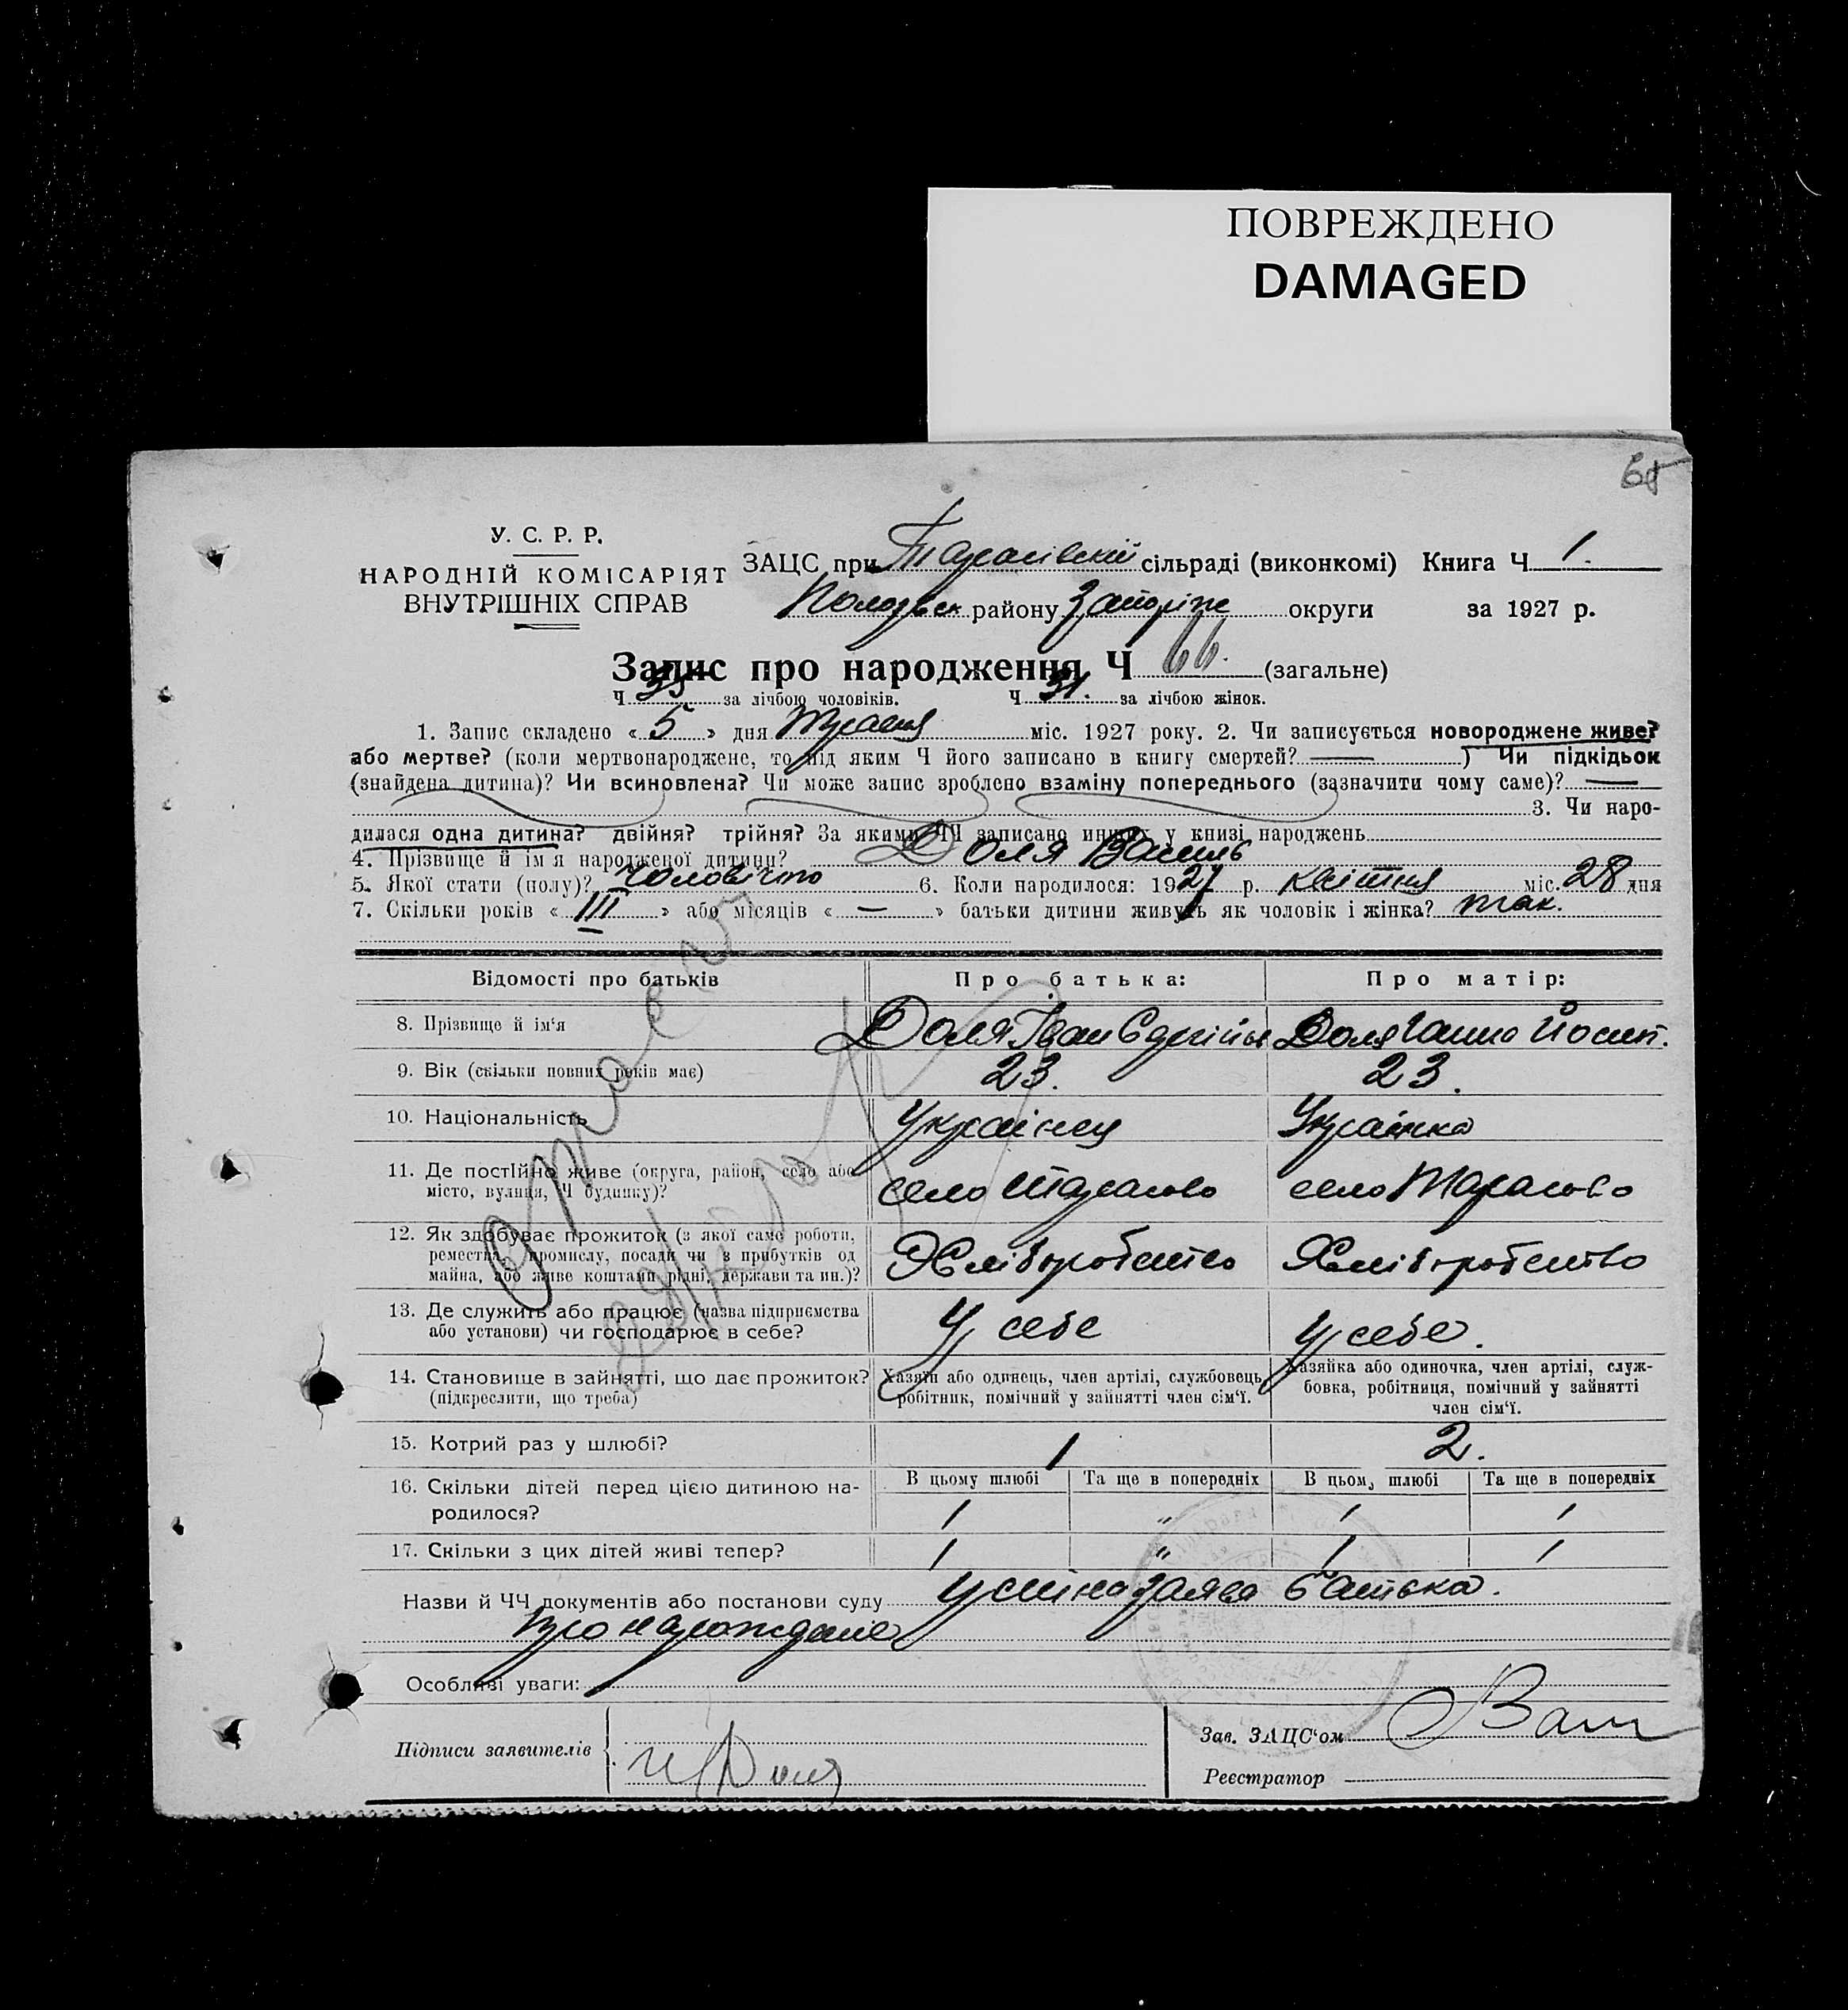 ПОВРЕЖДЕНО
DAMAGED
У. С. Р. Р.
НАРОДНІЙ КОМІСАРІЯТ
ВНУТРІШНІХ СПРАВ
ЗАЦС при Тарасівскій сільраді (виконкомі) Книга Ч 1.
району Запоріж округи за 1927 р.
Запис про народження Ч 66. (загальне)
Ч 35 за лічбою чоловіків. Ч 31. за лічбою жінок.
1. Запис складено « 5 » дня травня міс. 1927 року. 2. Чи записується новороджене живе?
або мертве? (коли мертвонароджене, то під яким Ч його записано в книгу смертей? — ) Чи підкідьок
(знайдена дитина)? Чи всиновлена? Чи може запис зроблено взаміну попереднього (зазначити чому саме)? —
3. Чи наро-
дилася одна дитина? двійня? трійня? За якими ЧЧ записано инших у книзі народжень
4. Прізвище й ім'я народженої дитини? Доля Василь
5. Якої стати (полу)? чоловічто 6. Коли народилося: 1927 р. квітня міс. 28 дня
7. Скільки років « III » або місяців « — » батьки дитини живуть як чоловік і жінка? так.
Відомості про батьків Про батька: Про матір:
8. Прізвище й ім'я Доля Іван Доля Ганна Йосип.
9. Вік (скільки повних років має) 23. 23.
10. Національність Українец Українка
11. Де постійно живе (округа, район, село або
місто, вулиця, Ч будинку)? село Тарасово село Тарасово
12. Як здобуває прожиток (з якої саме роботи,
ремества, промислу, посади чи з прибутків од
майна, або живе коштами рідні, держави та ин.)? Хліворобство Хліворобство
13. Де служить або працює (назва підприємства
або установи) чи господарює в себе? У себе У себе.
14. Становище в зайнятті, що дає прожиток?
(підкреслити, що треба)
Хазяїн або одинець, член артілі, службовець,
робітник, помічний у зайнятті член сім'ї.
Хазяйка або одиночка, член артілі, служ-
бовка, робітниця, помічний у зайнятті
член сім'ї.
15. Котрий раз у шлюбі? 1 2.
В цьому шлюбі Та ще в попередніх В цьом, шлюбі Та ще в попередніх
16. Скільки дітей перед цією дитиною на-
родилося? 1 " 1 1
17. Скільки з цих дітей живі тепер? 1 " 1 1
Назви й ЧЧ документів або постанови суду Усіна заява батька.
про нарождение
Особливі уваги:
Підписи заявителів
Зав. ЗАЦС'ом
Реєстратор